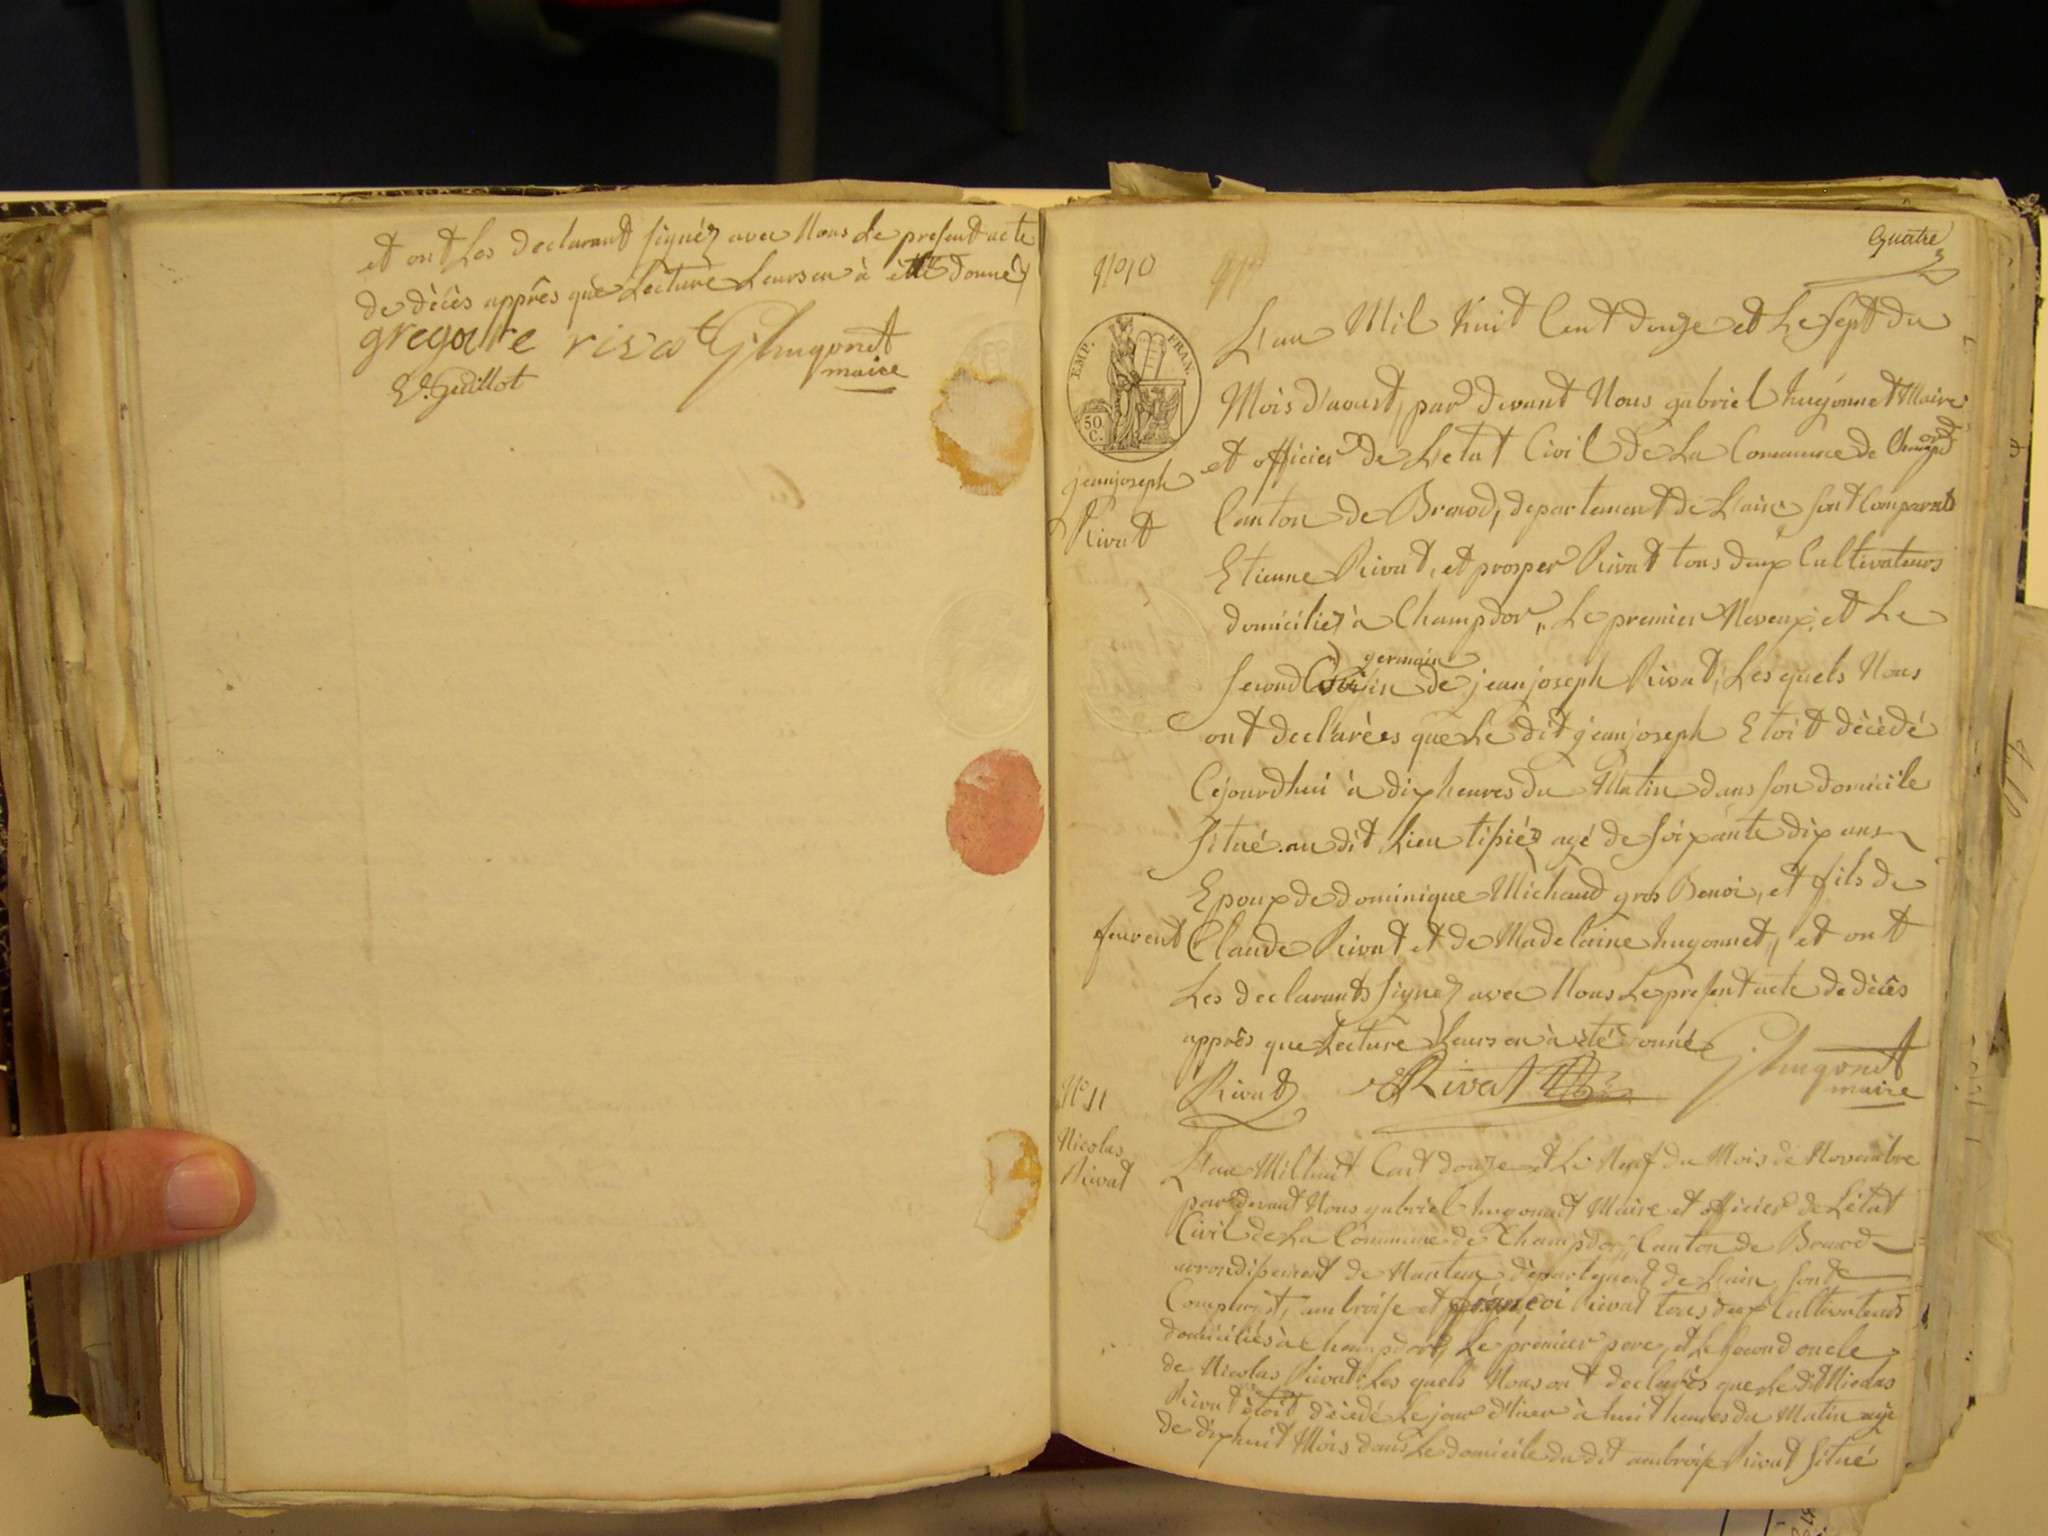 et ont Les declarant signéz avec Nous Le present acte
de décès apprês que Lecture Leurs en à été donné
gregoire rivat G. hugonet
maire
E. Guillot
Quatre
N° 10
L'an Mil huit Cent douze et Le sept du
EMP. FRAN.
50 C.
Mois d'aoust, par devant Nous gabriel hugonnet Maire
et officier de L'etat Civil de La Commune de Champdor
jeanjoseph
Rivat
Canton de Brenod, departement de L'ain, sont Comparuts
Etienne Rivat, et prosper Rivat tous deux Cultivateurs
domiciliez à Champdor, Le premier Neveux, et Le
germain
second Cousin de jeanjoseph Rivat, Les quels Nous
ont declarées que Le dit jeanjoseph Etoit décédé
Cejourdhui à dix heures du Matin dans son domicile
situé au dit Lieu agé de soixante dix ans
Epoux de dominique Michaud gros Benoi, et fils de
feurent Claude Rivat et de Madelaine hugonnet, et ont
Les declarants signéz avec Nous Le present acte de décès
apprês que Lecture Leurs en à été donné
G. hugonet
maire
Rivat Rivat
N° 11
Nicolas
Rivat
L'an Mil huit Cent douze et Le Neuf du Mois de Novembre
par devant Nous gabriel hugonnet Maire et officier de L'état
Civil de La Commune de Champdor, Canton de Brenod
arrondissement de Nantua, département de L'ain, sont
Comparut, ambroise et françoi Rivat tous deux Cultivateurs
domiciliés à Champdor, Le premier pere, et Le second oncle
de Nicolas Rivat, Les quels Nous ont declarés que Le dit Nicolas
Rivat étoit décédé Le jour d'hier à huit heures du Matin agé
de dix huit Mois dans Le domicile du dit ambroise Rivat situé